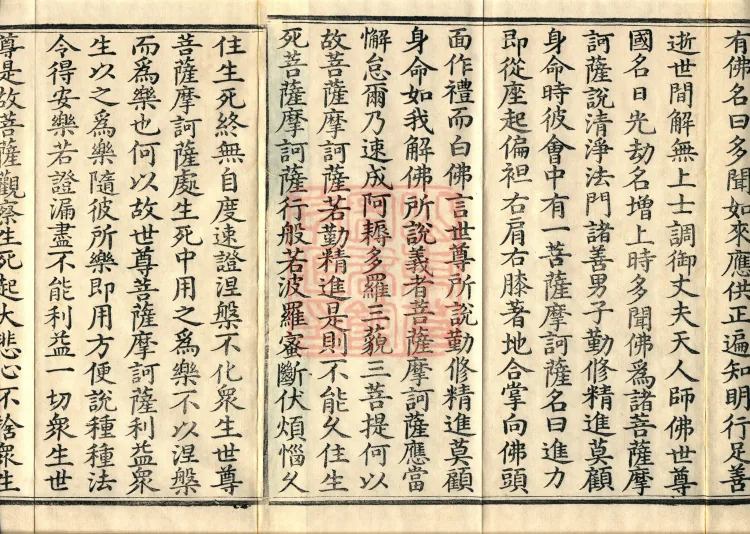 有佛名曰多聞如來應供正遍知明行足善
逝世間解無上士調御丈夫天人師佛世尊
國名日光劫名增上時多聞佛爲諸菩薩摩
訶薩說清淨法門諸善男子勤修精進莫顧
身命時彼會中有一菩薩摩訶薩名曰進力
即從座起偏袒右肩右膝著地合掌向佛頭
面作禮而白佛言世尊所說勤修精進莫顧
身命如我解佛所說義者菩薩摩訶薩應當
懈怠爾乃速成阿耨多羅三藐三菩提何以
故菩薩摩訶薩若勤精進是則不能久住生
死菩薩摩訶薩行般若波羅蜜斷伏煩惱久
住生死終無自度速證涅槃不化衆生世尊
菩薩摩訶薩處生死中用之爲樂不以涅槃
而爲樂也何以故世尊菩薩摩訶薩利益衆
生以之爲樂隨彼所樂即用方便說種種法
令得安樂若證漏盡不能利益一切衆生世
尊是故菩薩觀察生死起大悲心不捨衆生